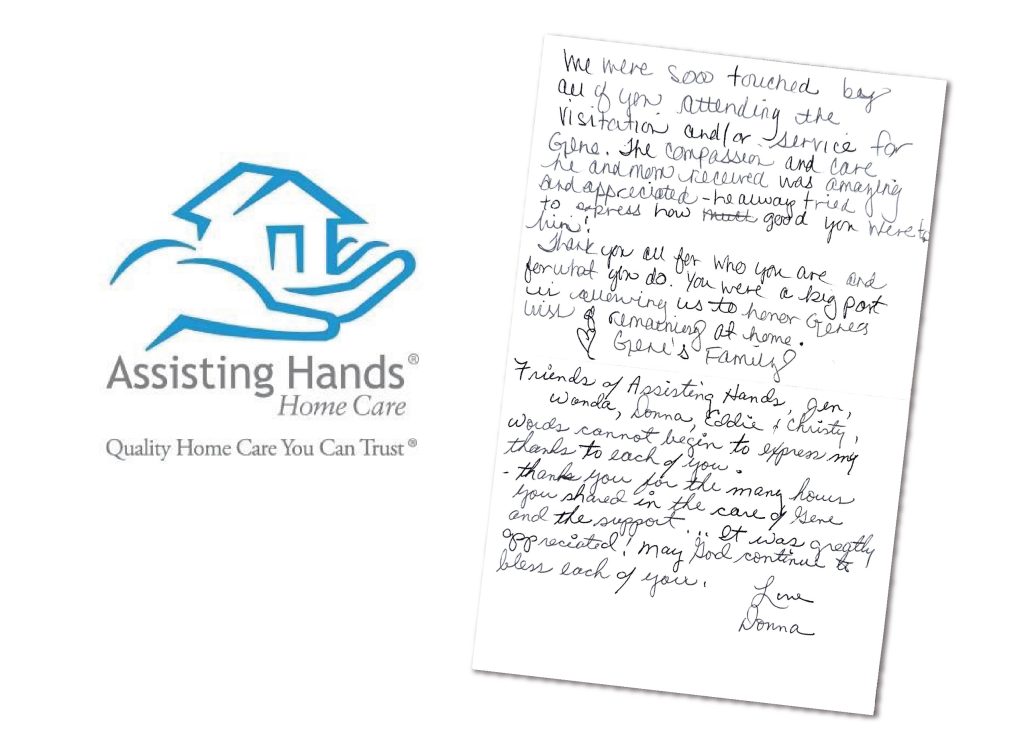 Assisting Hands®
Home Care
Quality Home Care You Can Trust®
We were sooo touched by
all of you attending the
visitation and/or service for
Gene. The compassion and care
he and mom received was amazing
and appreciated - he alway tried
to express how good you were to
him!
Thank you all for who you are and
for what you do. You were a big part
in allowing us to honor Genes
wish of remaining at home.
♡ Gene's Family
Friends of Assisting Hands, Jen,
Wonda, Donna, Eddie & Christy,
words cannot begin to express my
thanks to each of you.
- thank you for the many hours
you shared in the care of Gene
and the support... It was greatly
appreciated! May God continue to
bless each of you.
Love
Donna